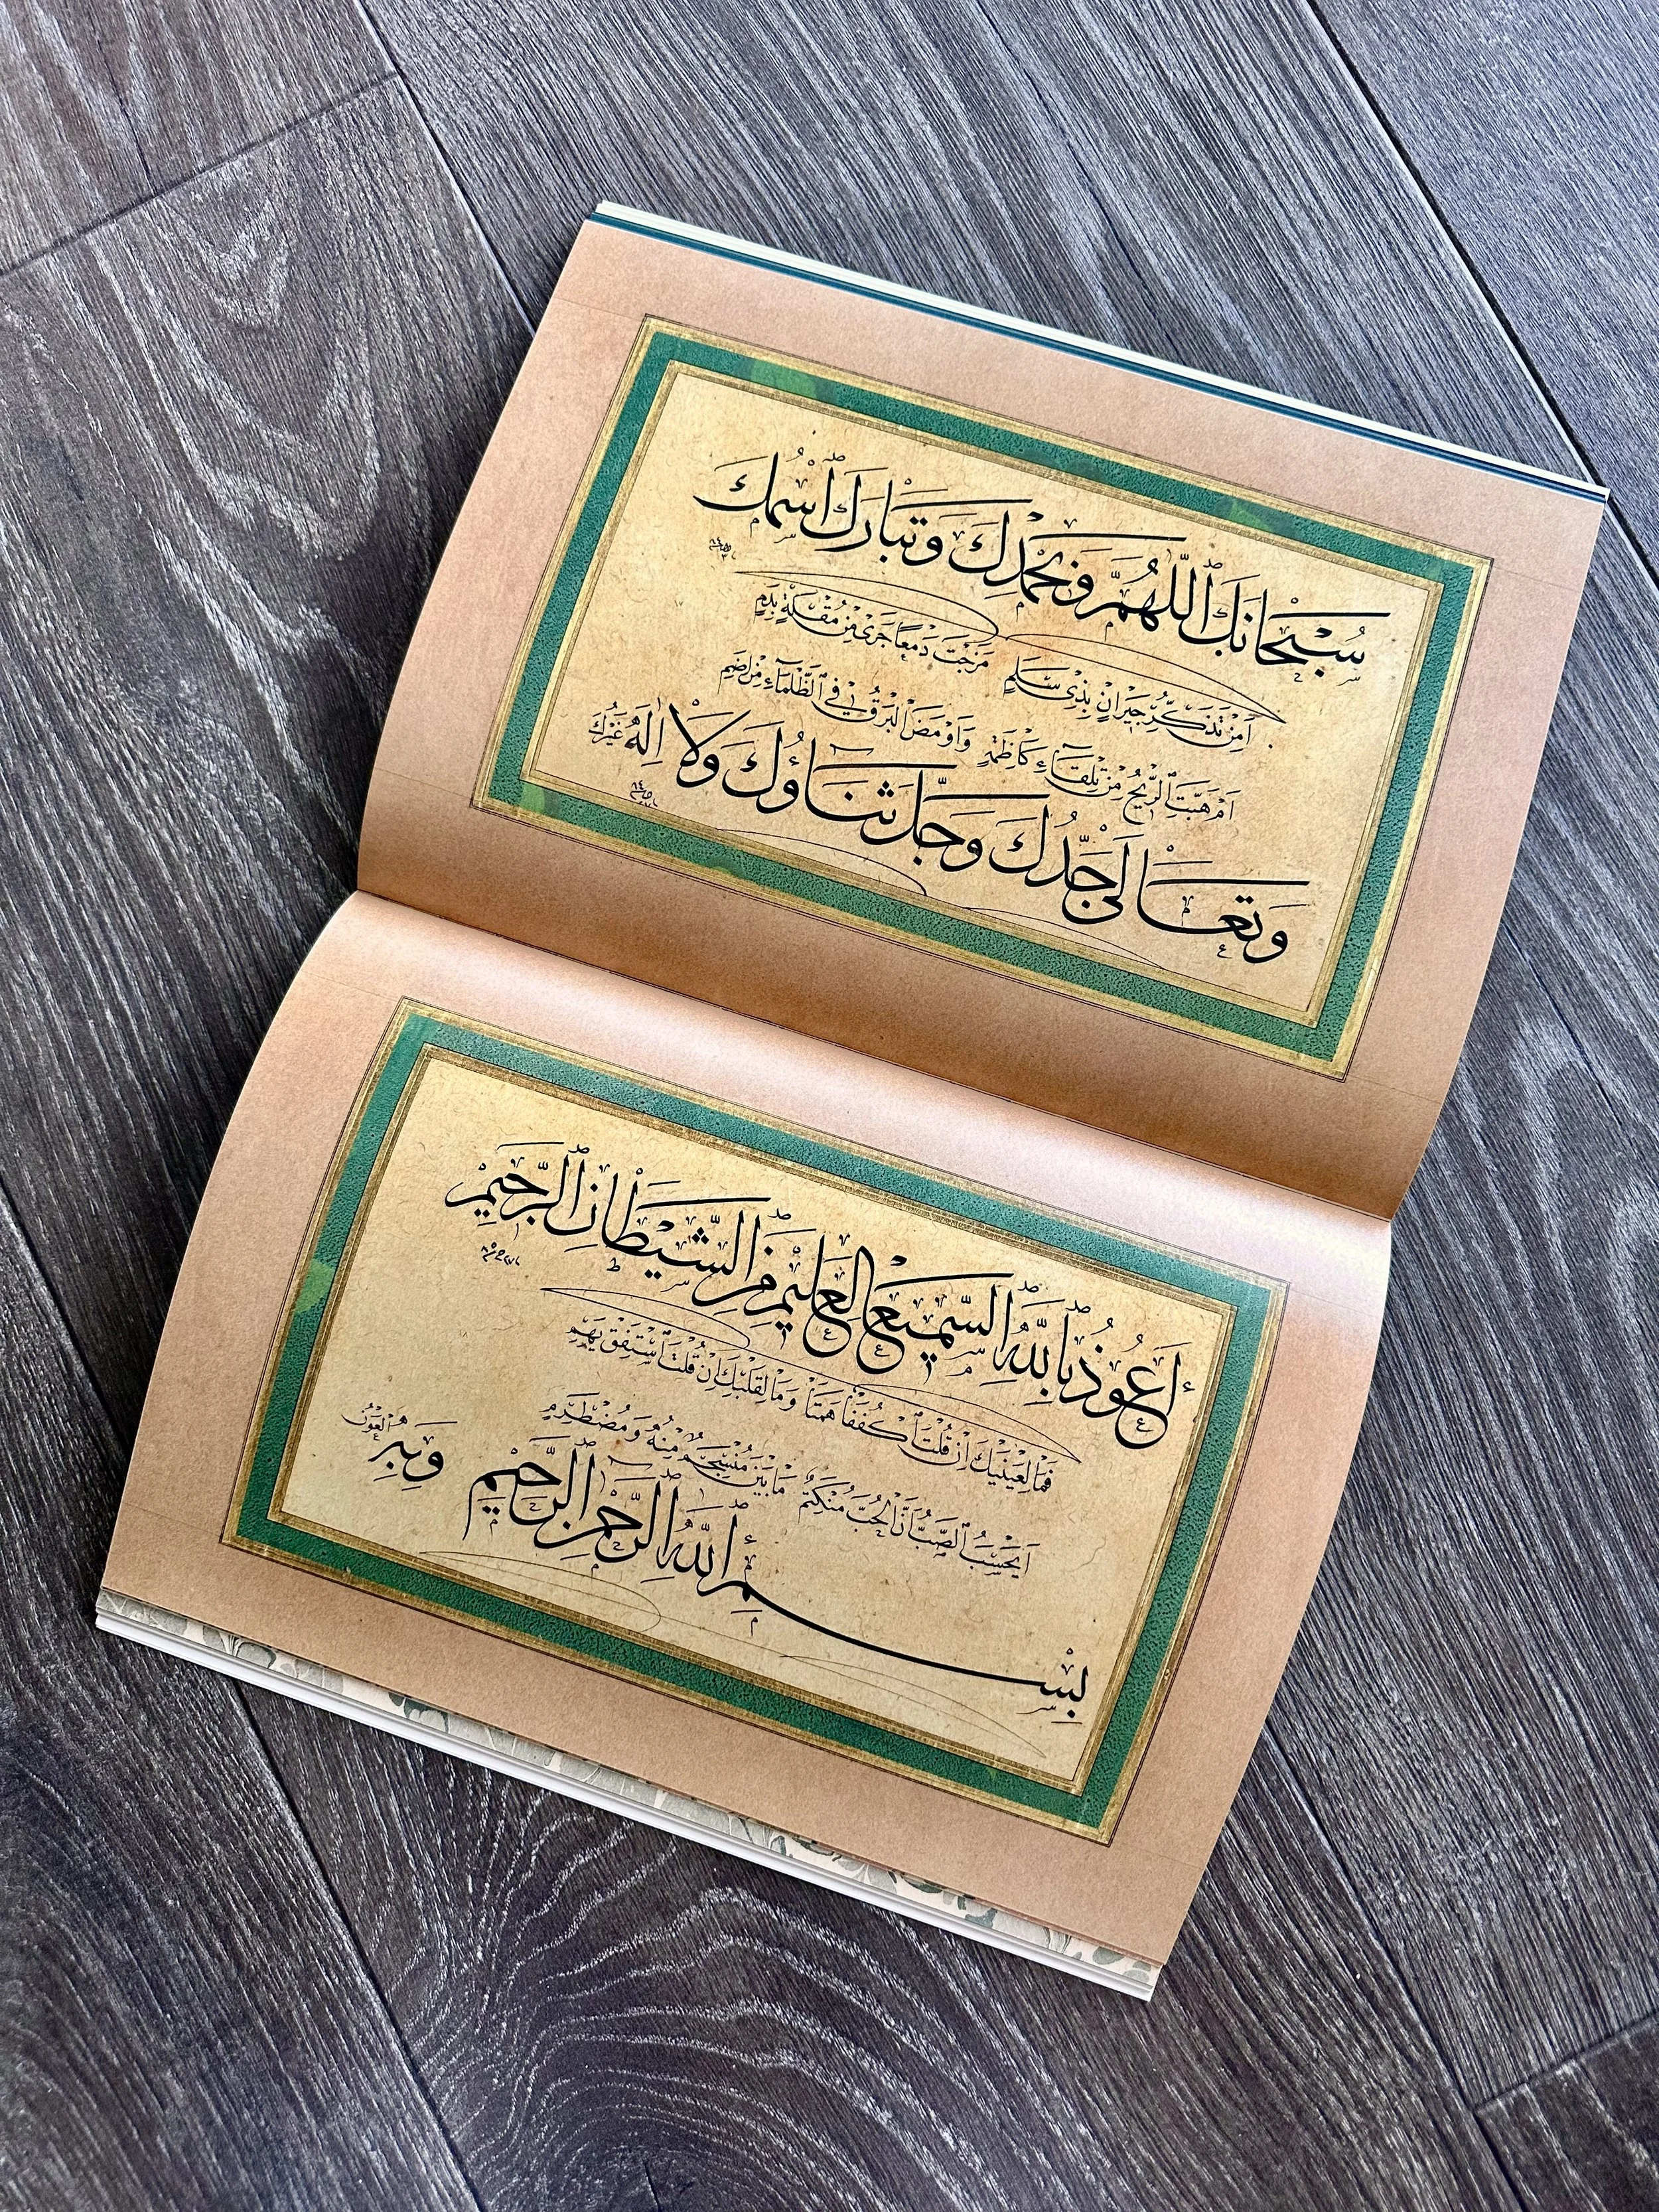 سُبْحَانَكَ اللّٰهُمَّ وَبِحَمْدِكَ وَتَبَارَكَ اسْمُكَ
اَمِنْ تَذَكُّرِ جِيرَانٍ بِذِي سَلَمٍ مَزَجْتَ دَمْعًا جَرٰى مِنْ مُقْلَةٍ بِدَمٍ
اَمْ هَبَّتِ الرِّيحُ مِنْ تِلْقَاءِ كَاظِمَةٍ وَاَوْمَضَ الْبَرْقُ فِي الظَّلْمَاءِ مِنْ اِضَمِ
وَتَعَالٰى جَدُّكَ وَجَلَّ ثَنَاؤُكَ وَلَا اِلٰهَ غَيْرُكَ
اَعُوذُ بِاللّٰهِ السَّمِيعِ الْعَلِيمِ مِنَ الشَّيْطَانِ الرَّجِيمِ
فَمَا لِعَيْنَيْكَ اِنْ قُلْتَ اكْفُفَا هَمَتَا وَمَا لِقَلْبِكَ اِنْ قُلْتَ اسْتَفِقْ يَهِمِ
اَيَحْسَبُ الصَّبُّ اَنَّ الْحُبَّ مُنْكَتِمٌ مَا بَيْنَ مُنْسَجِمٍ مِنْهُ وَمُضْطَرِمِ
بِسْمِ اللّٰهِ الرَّحْمٰنِ الرَّحِيمِ وَبِهِ الْعَوْنُ